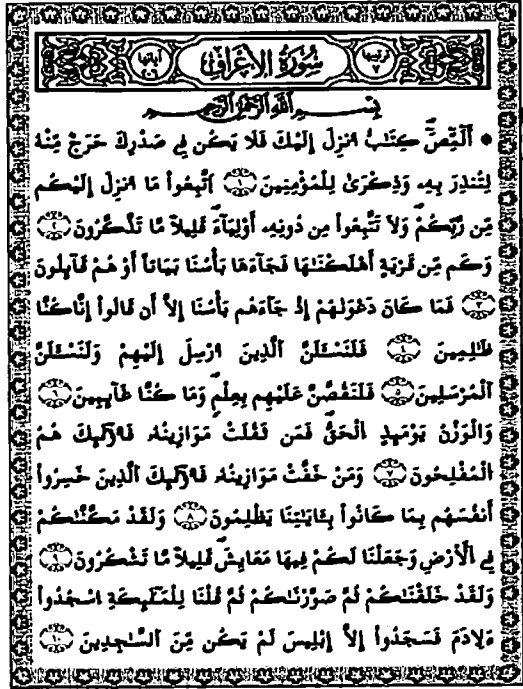 ترتيبها ٧ سُورَةُ الأَعْرَافِ آياتها ٢٠٦
بِسْمِ اللَّهِ الرَّحْمَٰنِ الرَّحِيمِ
• أَلَٓمِّٓصَٓۖ كِتَٰبٌ ا۟نزِلَ إِلَيْكَ فَلَا يَكُن فِي صَدْرِكَ حَرَجٌ مِّنْهُ
لِتُنذِرَ بِهِۦ وَذِكْرَىٰ لِلْمُؤْمِنِينَ ۝١ اَتَّبِعُواْ مَا ا۟نزِلَ إِلَيْكُم
مِّن رَّبِّكُمْ وَلَا تَتَّبِعُواْ مِن دُونِهِۦ أَوْلِيَآءَ قَلِيلاً مَّا تَذَّكَّرُونَ ۝٢
وَكَم مِّن قَرْيَةٍ أَهْلَكْنَٰهَا فَجَآءَهَا بَأْسُنَا بَيَاتاً أَوْ هُمْ قَآئِلُونَ
۝٣ فَمَا كَانَ دَعْوَىٰهُمْ إِذْ جَآءَهُم بَأْسُنَا إِلَّا أَن قَالُواْ إِنَّا كُنَّا
ظَٰلِمِينَ ۝٤ فَلَنَسْـَٔلَنَّ اَلَّذِينَ ا۟رْسِلَ إِلَيْهِمْ وَلَنَسْـَٔلَنَّ
اَلْمُرْسَلِينَ ۝٥ فَلَنَقُصَّنَّ عَلَيْهِم بِعِلْمٍ وَمَا كُنَّا غَآئِبِينَ ۝٦
وَالْوَزْنُ يَوْمَئِذٍ اِلْحَقُّ فَمَن ثَقُلَتْ مَوَٰزِينُهُۥ فَأُوْلَٰٓئِكَ هُمُ
اُلْمُفْلِحُونَ ۝٧ وَمَنْ خَفَّتْ مَوَٰزِينُهُۥ فَأُوْلَٰٓئِكَ اَلَّذِينَ خَسِرُواْ
أَنفُسَهُم بِمَا كَانُواْ بِـَٔايَٰتِنَا يَظْلِمُونَ ۝٨ وَلَقَدْ مَكَّنَّٰكُمْ
فِي اِلْأَرْضِ وَجَعَلْنَا لَكُمْ فِيهَا مَعَٰيِشَ قَلِيلاً مَّا تَشْكُرُونَ ۝٩
وَلَقَدْ خَلَقْنَٰكُمْ ثُمَّ صَوَّرْنَٰكُمْ ثُمَّ قُلْنَا لِلْمَلَٰٓئِكَةِ اِسْجُدُواْ
ءَلِادَمَ فَسَجَدُواْ إِلَّا إِبْلِيسَ لَمْ يَكُن مِّنَ اَلسَّٰجِدِينَ ۝١٠